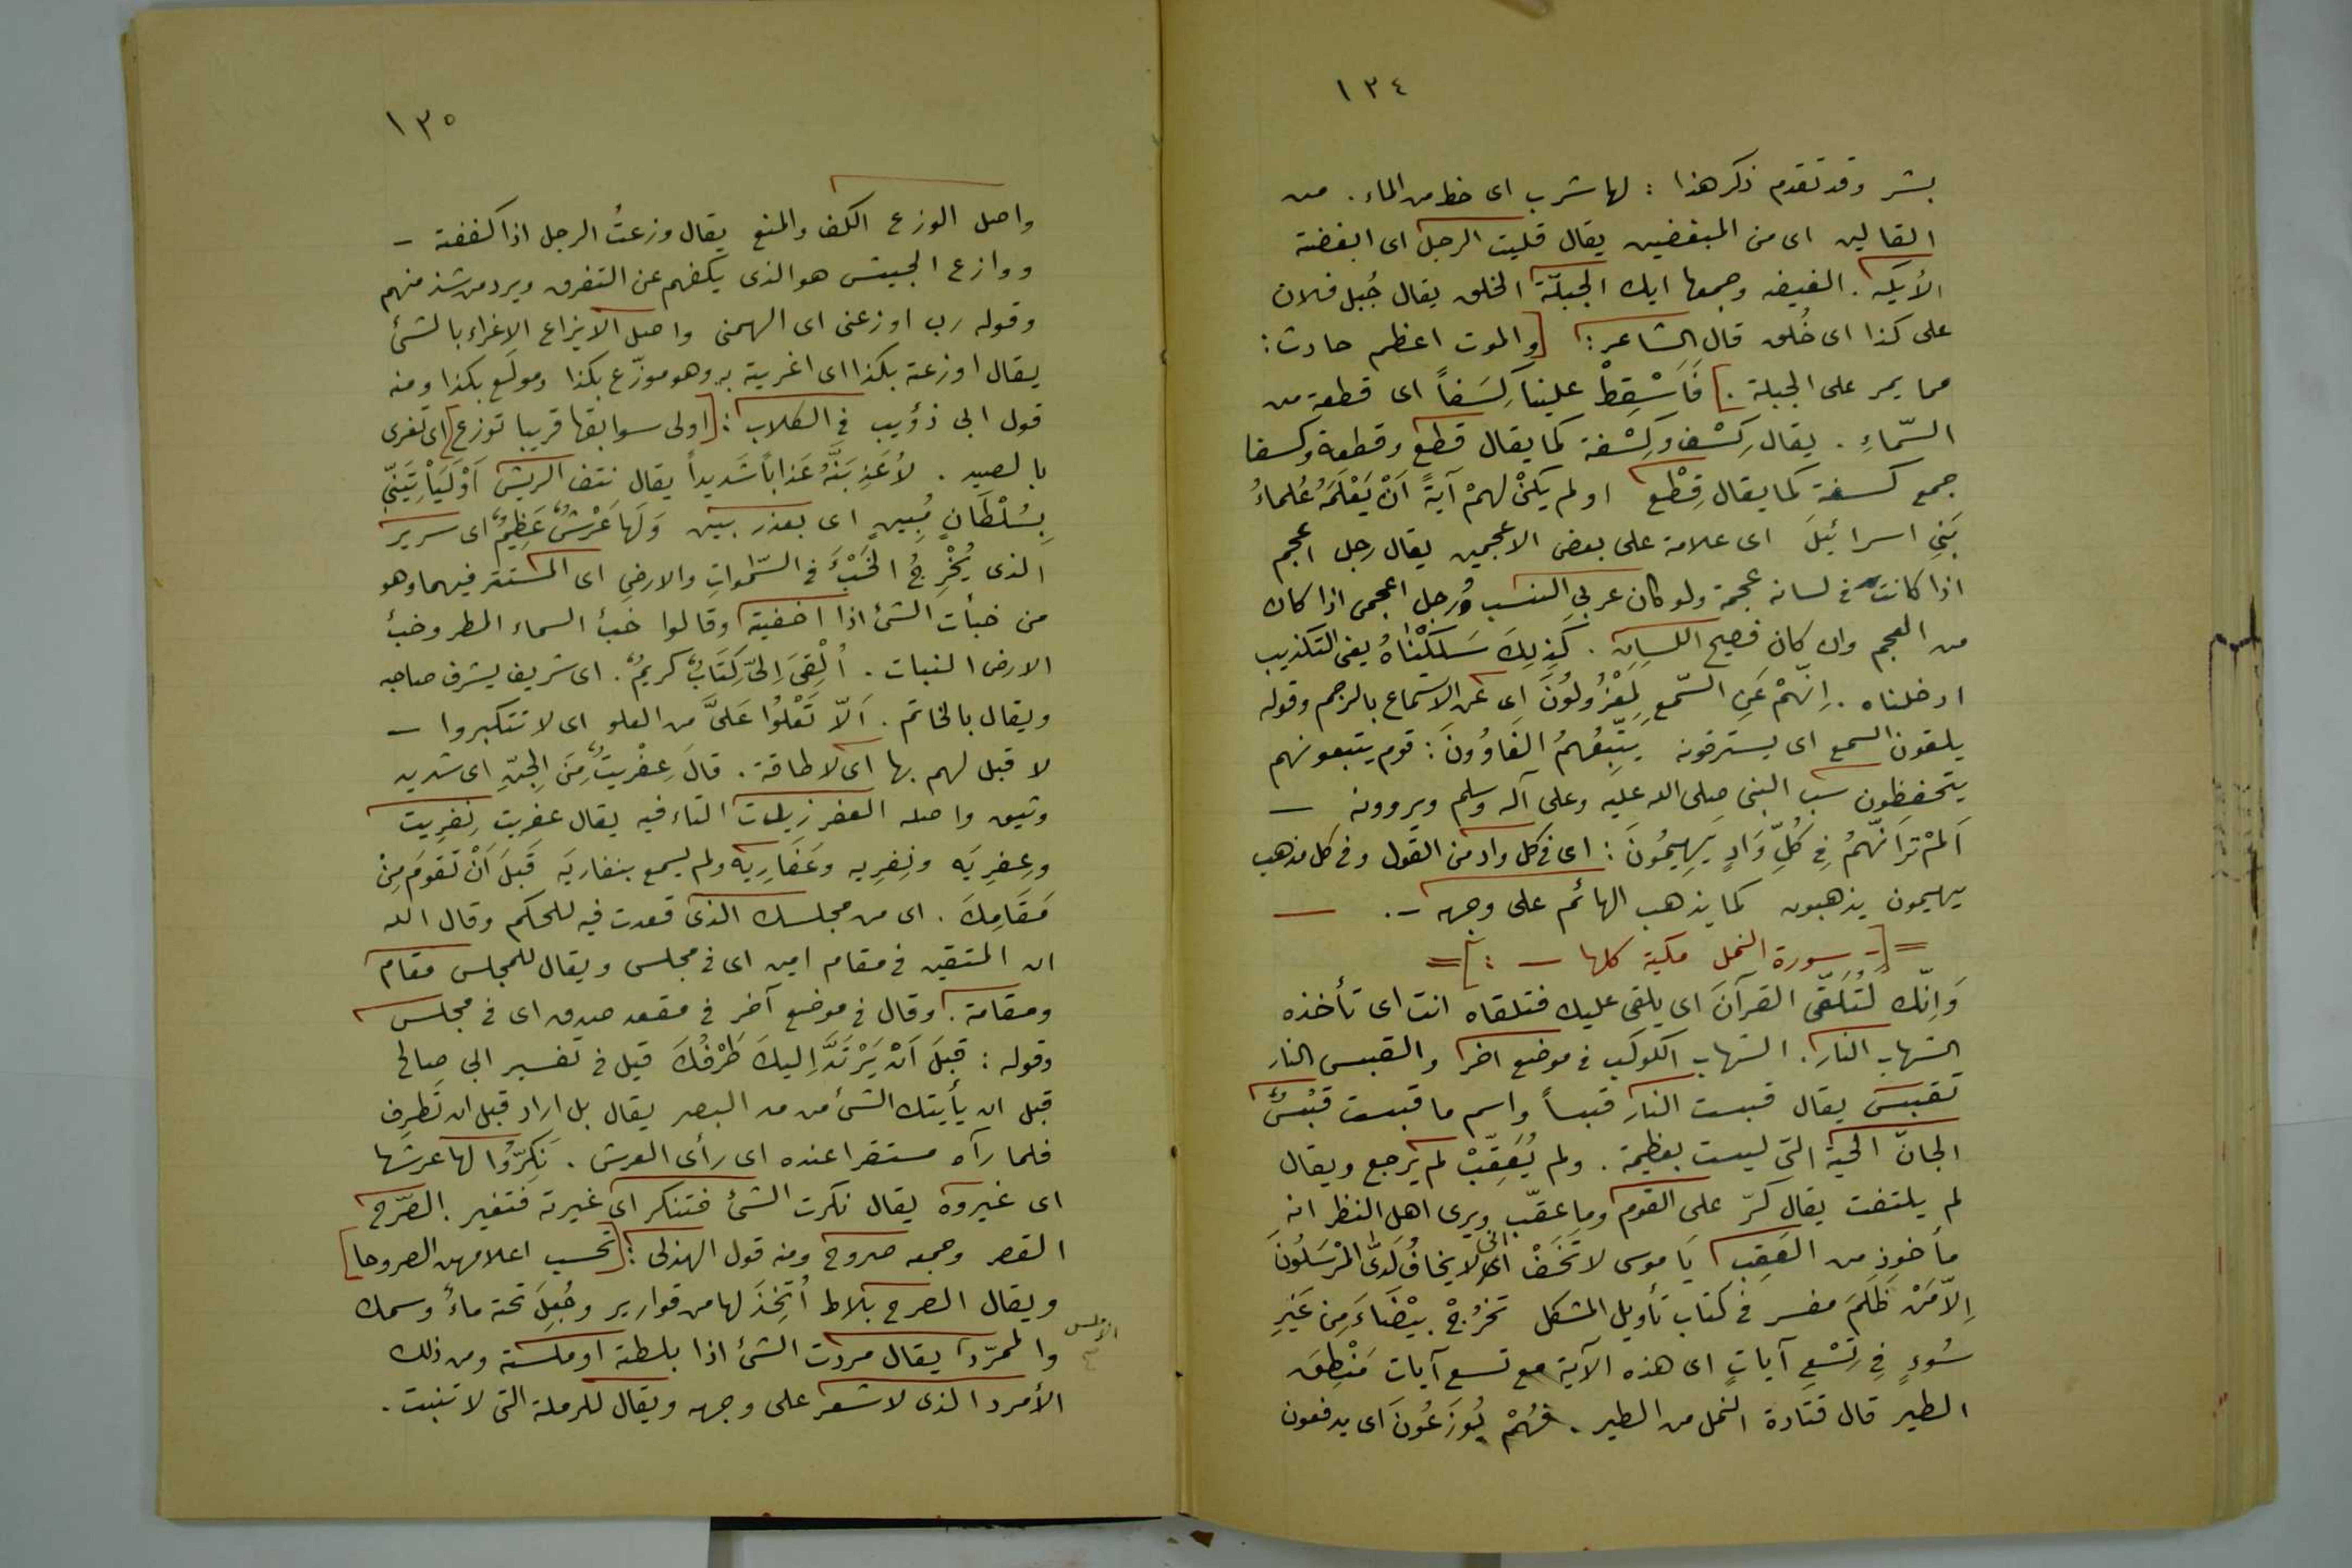 ١٣٤
بشر وقد تقدم ذكر هذا : لها شرب اى حظ من الماء . من
القالين اى من المبغضين يقال قليت الرجل اى ابغضته
الأيكه . الغيضه وجمعها ايك الجبلّة الخلق يقال جُبل فلان
على كذا اى خُلق قال الشاعر : [والموت اعظم حادث :
مما يمر على الجبلة .] فَاَسْقِطْ علينا كِسَفاً اى قطعة من
السّماءِ . يقال كِسْف وكِسْفة كما يقال قطع وقطعة وكسفا
جمع كسفة كما يقال قِطْع اولم يكنْ لهمْ آيةً اَنْ يَعْلَمَهُ عُلماءُ
بَنِي اسرائيلَ اى علامة على بعض الاعجمين يقال رجل اعجم
اذا كانت فى لسانه عجمة ولو كان عربي النسب ورجل اعجمى اذا كان
من العجم وان كان فصيح اللسان . كَذٰلِكَ سَلَكْنَاهُ يعنى التكذيب
ادخلناه . اِنّهمْ عَنِ السّمعِ لَمَعْزُولُونَ اى عن الاستماع بالرجم وقوله
يلقون السمع اى يسترقونه يَتّبِعُهمُ الغَاوُونَ : قوم يتبعونهم
يتحفظون سب النبى صلى الله عليه وعلى آله وسلم ويروونه —
اَلمْ تَرَ انّهمُ فِى كُلِّ وَادٍ يَهِيمُونَ : اى فى كل واد من القول وفى كل مذهب
يهيمون يذهبون كما يذهب الهائم على وجهه - . —
=[- سورة النمل مكية كلها — : ]=
وَاِنّك لَتُلَقّى القرآنَ اى يلقى عليك فتلقاه انت اى تأخذه
الشهاب النار . الشهاب الكوكب فى موضع اخر والقبس النار
تقبسَ يقال قبست النار قبساً واسم ما قبست قبْسٌ
الجانّ الحية التى ليست بعظيمة . ولم يُعَقِّبْ لم يرجع ويقال
لم يلتفت يقال كرّ على القوم وما عقّب ويرى اهل النظر انه
مأخوذ من العَقِب يَا موسى لا تَخَفْ انى لا يخافُ لَدىَّ المُرْسَلُونَ
اِلاّ مَنْ ظَلَمَ مفسر فى كتاب تأويل المشكل تخرُجْ بيْضَاءَ مِن غَيرِ
سُوءٍ فِى تِسْعِ آياتٍ اى هذه الآية مع تسع آيات مَنْطِقَ
الطير قال قتادة النمل من الطير . فهُمْ يُوزَعُونَ اى يدفعون
١٣٥
واصل الوزع الكف والمنع يقال وزعتُ الرجل اذا كففته —
ووازع الجيش هو الذى يكفهم عن التفرق ويرد من شذ منهم
وقوله رب اوزعنى اى الهمنى واصل الايزاع الاغراء بالشئ
يقال اوزعته بكذا اى اغريته به وهو موزّع بكذا ومولَع بكذا ومنه
قول ابى ذؤيب فى الكلاب : [اولى سوابقها قريبا توزع] اى تغرى
بالصيد . لأُعَذِبَنَّهُ عَذاباً شَديداً يقال نتف الريش اَوْ لَيَأْتِيَنّى
بِسُلْطَانٍ مُبينٍ اى بعذر بين وَلَهَا عَرْشٌ عَظِيمٌ اى سرير
الذى يُخْرِجُ الخَبْءَ فى السّمٰواتِ والارضِ اى المستتر فيهما وهو
من خبأت الشئ اذا اخفيته وقالوا خبأ السماء المطر وخبأ
الارض النبات . اُلْقِىَ اِلىّ كِتَابٌ كريمٌ . اى شريف يشرف صاحبه
ويقال بالخاتم . اَلاّ تَعْلُوا عَلَىَّ من العلو اى لا تتكبروا —
لا قبل لهم بها اى لا طاقة . قالَ عِفْريتٌ مِنَ الجِنّ اى شديد
وثيق واصله العفر زيدت التاء فيه يقال عفريت نِفرِيت
وعِفرِيَه ونِفرِيه وعَفَارِيَه ولم يسمع بنفاريَه قَبلَ اَنْ تَقومَ مِنْ
مَقَامِكَ . اى من مجلسك الذى قعدت فيه للحكم وقال الله
ان المتقين فى مقام امين اى فى مجلس ويقال للمجلس مقام
ومقامة . وقال فى موضع آخر فى مقعد صدق اى فى مجلس
وقوله : قبلَ اَنْ يَرْتَدَّ اِليكَ طَرْفُكَ قيل فى تفسير ابى صالح
قبل ان يأيتك الشئ من مد البصر يقال بل اراد قبل ان تَطرِف
فلما رآه مستقرا عنده اى رأى العرش . نَكِرّوُا لها عرشَها
اى غيروه يقال نكرت الشئ فتنكر اى غيرته فتغير . الصّرح
القصر وجمعه صروح ومنه قول الهذلى : [تحسب اعلامهن الصروحا]
ويقال الصرح بلاط اُتّخِذَ لها من قوارير وجُعِلَ تحته ماءٌ وسمك
والممرّد يقال مردت الشئ اذا بلطته او ملسته ومن ذلك
الأمرد الذى لا شعر على وجهه ويقال للرملة التى لا تنبت .